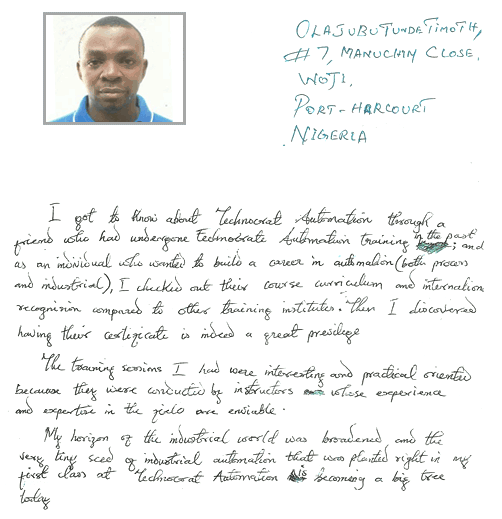 OLAJUBUTUNDE TIMOTH,
#7, MANUCHIM CLOSE,
WOJI,
PORT-HARCOURT
NIGERIA
I got to know about Technocrat Automation through a
friend who had undergone Technocrate Automation training in the past; and
as an individual who wanted to build a career in automation (both process
and industrial), I checked out their course curriculum and internation
recognision compared to other training institutes. Then I discovered
having their certificate is indeed a great previlege
The training sessions I had were interesting and practical oriented
because they were conducted by instructors whose experience
and expertise in the field are enviable.
My horizon of the industrial world was broadened and the
very tiny seed of industrial automation that was planted right in my
first class at Technocrat Automation is becoming a big tree
today